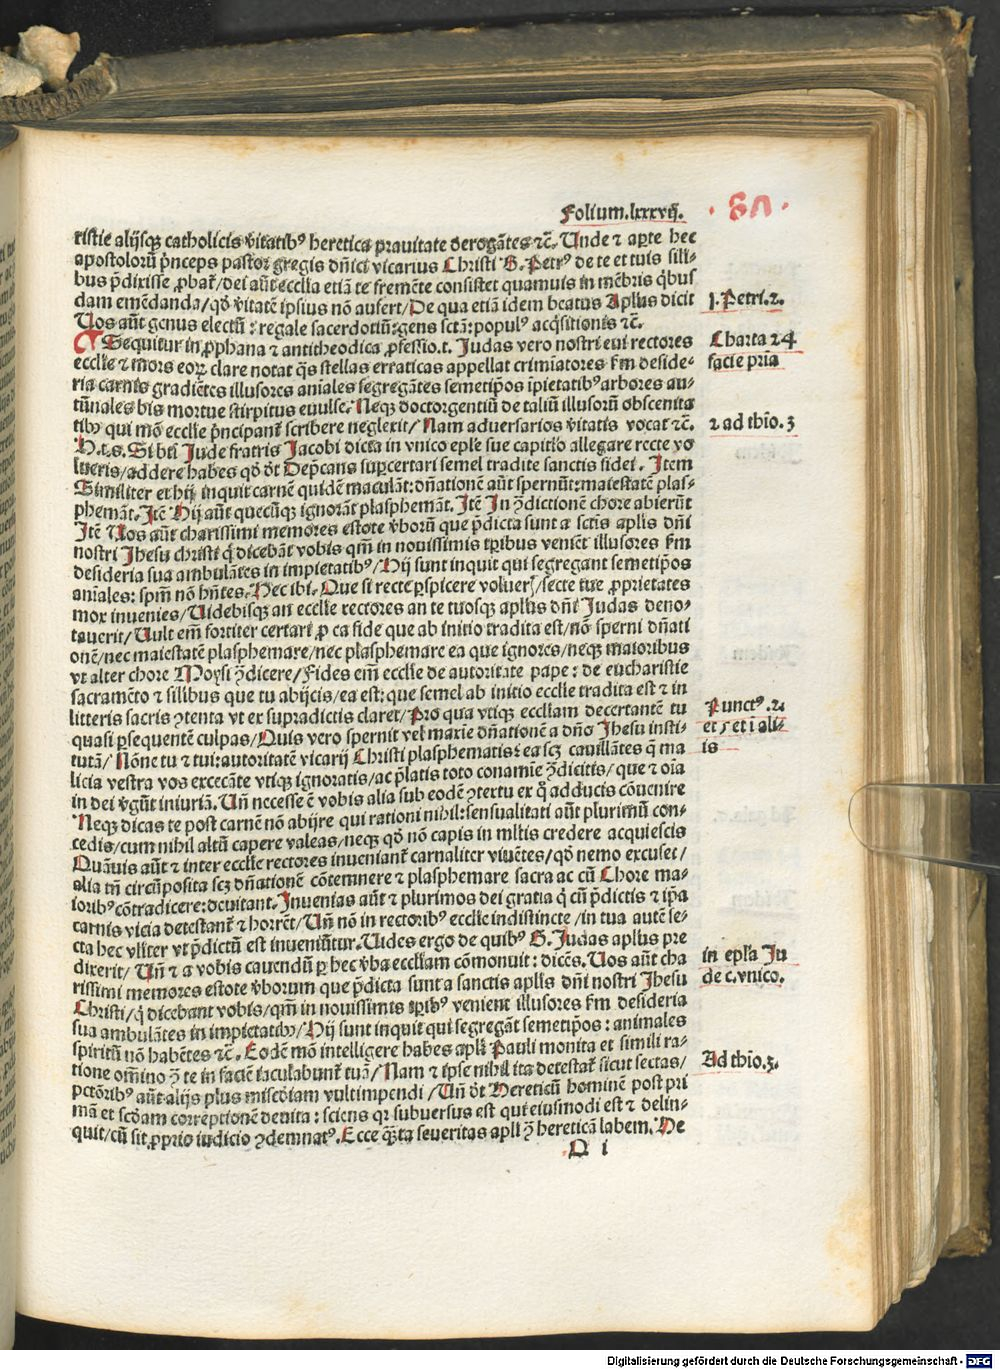 Folium.lxxxvij.
ristie alijsqꝫ catholicis v̄itatibꝰ heretica prauitate derogātes ꝛc̄. Unde ⁊ aꝑte hec
apostolorū pn̄ceps pastor gregis dn̄ici vicarius Christi B. Petrꝰ de te et tuis sili-
bus p̄dixisse ꝓbat̄/dei aūt ecclīa etiā te fremēte consistet quamuis in mēbris qͥbus
dam emēdanda/qꝛ v̄itatē ipsius nō aufert/De qua etiā idem beatus Aplūs dicit
Uos aūt genus electū: regale sacerdotiū: gens sctā: populꝰ acqͥsitionis ꝛc̄.
Sequitur in ꝓphana ⁊ antitheodica ꝓfessio.t. Judas vero nostri eui rectores
ecclīe ⁊ mors eoꝝ clare notat qͥs stellas erraticas appellat crimīatores ẜm deside-
ria carnis gradiētes illusores anīales segregātes semetip̄os īpietatibꝰ arbores au-
tūnales bis mortue stirpitus euulse. Neqꝫ doctor gentiū de taliū illusorū obscenita
tibꝰ qui mō ecclīe pn̄cipant̄ scribere neglexit/Nam aduersarios v̄itatis vocat ꝛc̄.
H.t.s. Si bt̄i Jude fratris Jacobi dicta in vnico eplē sue capitl̄o allegare recte vo
lueris/addere habes qꝛ dt̄ Dep̄cans suꝑcertari semel tradite sanctis fidei. Item
Similiter et hij inquit carnē quidē maculāt: dn̄ationē aūt spernūt: maiestatē plas-
phemāt. Itē Hij aūt quecūqꝫ ignorāt plasphemāt. Itē In ꝯdictionē chore abierūt
Itē Uos aūt charissimi memores estote v̄borū que p̄dicta sunt a sctīs aplīs dn̄i
nostri Jhesu christi qͥ dicebāt vobis qm̄ in nouissimis tꝑibus veniēt illusores ẜm
desideria sua ambulātes in impietatibꝰ/Hij sunt inquit qui segregant semetip̄os
anīales: spm̄ nō hn̄tes. Hec ibi. Que si recte ꝑspicere voluerꝭ/secte tue ꝓprietates
mox inuenies/Uidebisqꝫ an ecclīe rectores an te tuosqꝫ aplūs dn̄i Judas deno-
tauerit/Uult em̄ fortiter certari ꝓ ea fide que ab initio tradita est/nō sperni dn̄ati
onē/nec maiestatē plasphemare/nec plasphemare ea que ignores/neqꝫ maioribus
vt alter chore Moysi ꝯdicere/Fides em̄ ecclīe de autoritate pape: de eucharistie
sacramēto ⁊ silibus que tu abijcis/ea est: que semel ab initio ecclīe tradita est ⁊ in
litteris sacris ꝯtenta vt ex supradictis claret/Pro qua vtiqꝫ eccliam decertantē tu
quasi ꝑsequentē culpas/Quis vero spernit vel maxīe dn̄ationē a dn̄o Jhesu insti-
tutā/Nōne tu ⁊ tui: autoritatē vicarij Christi plasphematis: ea scꝫ cauillātes q̄ ma
licia vestra vos excecāte vtiqꝫ ignoratis/ac p̄latis toto conamīe ꝯdicitis/que ⁊ oīa
in dei v̄gūt iniuriā. Un̄ necesse ē vobis alia sub eodē ꝯtextu ex qͦ adducis cōuenire
Neqꝫ dicas te post carnē nō abijre qui rationi nihil: sensualitati aūt plurimū con-
cedis/cum nihil altū capere valeas/neqꝫ qꝛ nō capis in mltīs credere acquiescis
Quāuis aūt ⁊ inter ecclīe rectores inueniant̄ carnaliter viuētes/qꝛ nemo excuset/
alia tn̄ circūposita scꝫ dn̄ationē cōtemnere ⁊ plasphemare sacra ac cū Chore ma-
ioribꝰ cōtradicere: deuitant. Inuenias aūt ⁊ plurimos dei gratia qͥ cū p̄dictis ⁊ ip̄a
carnis vicia detestant̄ ⁊ horrēt/Un̄ nō in rectoribꝰ ecclīe indistincte/in tua autē se-
cta hec vlīter vt p̄dictū est inueniūtur. Uides ergo de quibꝰ B. Judas aplūs pre
dixerit/Un̄ ⁊ a vobis cauendū ꝑ hec v̄ba eccliam cōmonuit: dicēs. Uos aūt cha
rissimi memores estote v̄borum que p̄dicta sunt a sanctis aplīs dn̄i nostri Jhesu
Christi/qͥ dicebant vobis/qm̄ in nouissimis tꝑibꝰ venient illusores ẜm desideria
sua ambulātes in impietatibꝰ/Hij sunt inquit qui segregāt semetip̄os: animales
spiritū nō habētes ꝛc̄. Eodē mō intelligere habes aplī Pauli monita et simili ra-
tione om̄ino ꝯ te in faciē iaculabunt̄ tuā/Nam ⁊ ipse nihil ita detestat̄ sicut sectas/
pctōribꝰ aūt alijs plus misc̄diam vult impendi/Un̄ dt̄ Hereticū hominē post pri
mā et scd̄am correptionē deuita: sciens qꝛ subuersus est qui eiusmodi est ⁊ delin-
quit/cū sit ꝓprio iudicio ꝯdemnatꝰ. Ecce qͣnta seueritas aplī ꝯ hereticā labem. De
Q i
j. Petri. 2.
Charta 24
facie pria
2 ad thīo. 3
Punctꝰ .2.
et 5 et ī ali-
is
in epl̄a Ju
de c. vnico.
Ad thīo. 3.
Digitalisierung gefördert durch die Deutsche Forschungsgemeinschaft - DFG